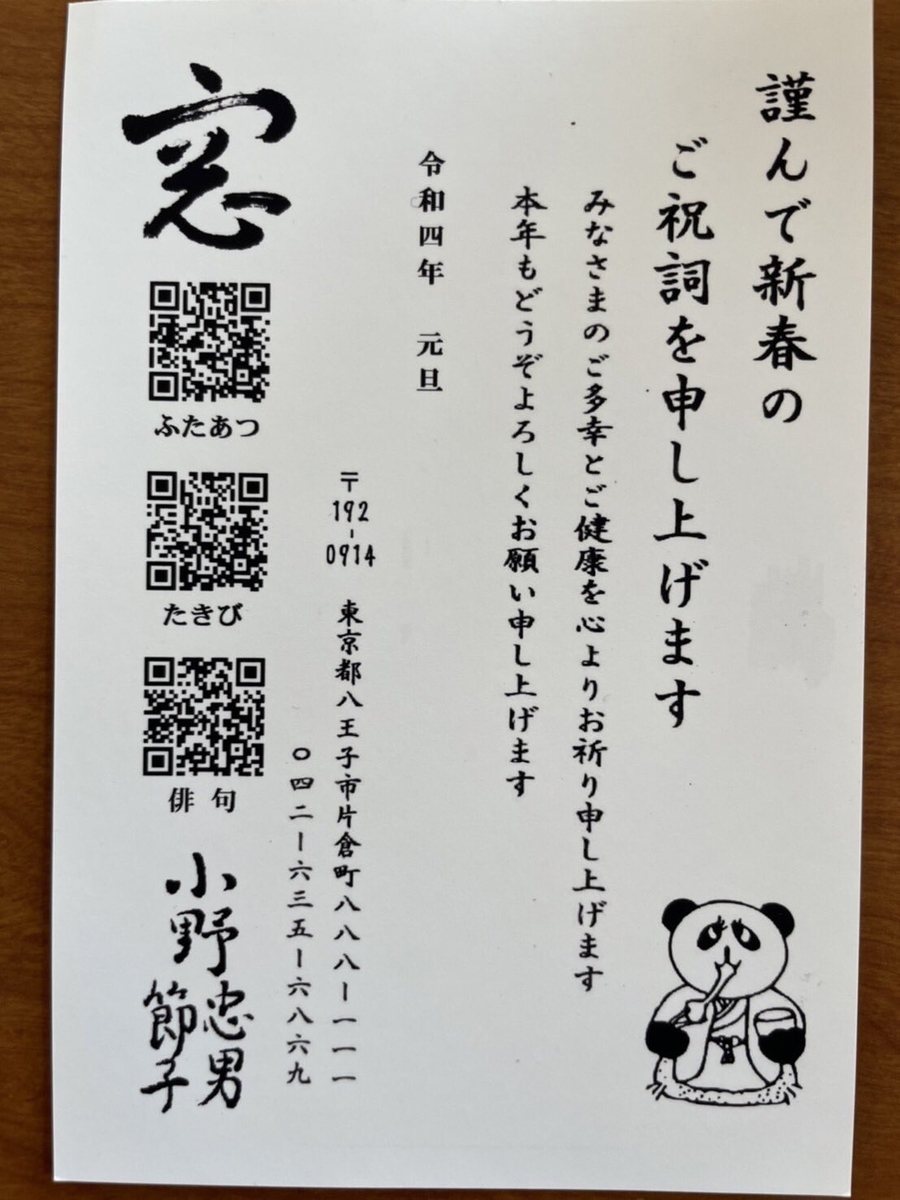 謹んで新春の
ご祝詞を申し上げます
みなさまのご多幸とご健康を心よりお祈り申し上げます
本年もどうぞよろしくお願い申し上げます
令和四年 元旦
〒192-0914 東京都八王子市片倉町八八八ー一一一
〇四二ー六三五ー六八六九
窓
ふたあつ
たきび
俳句
小野忠男
節子